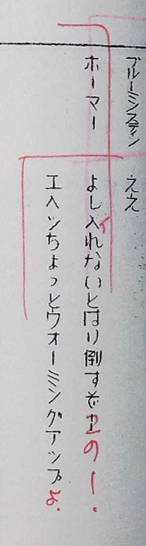 ブルーミンスティン ええ
ホーマー よし入れないとはり倒すぞ の!
エヘッちょっとウオーミングアップよ.